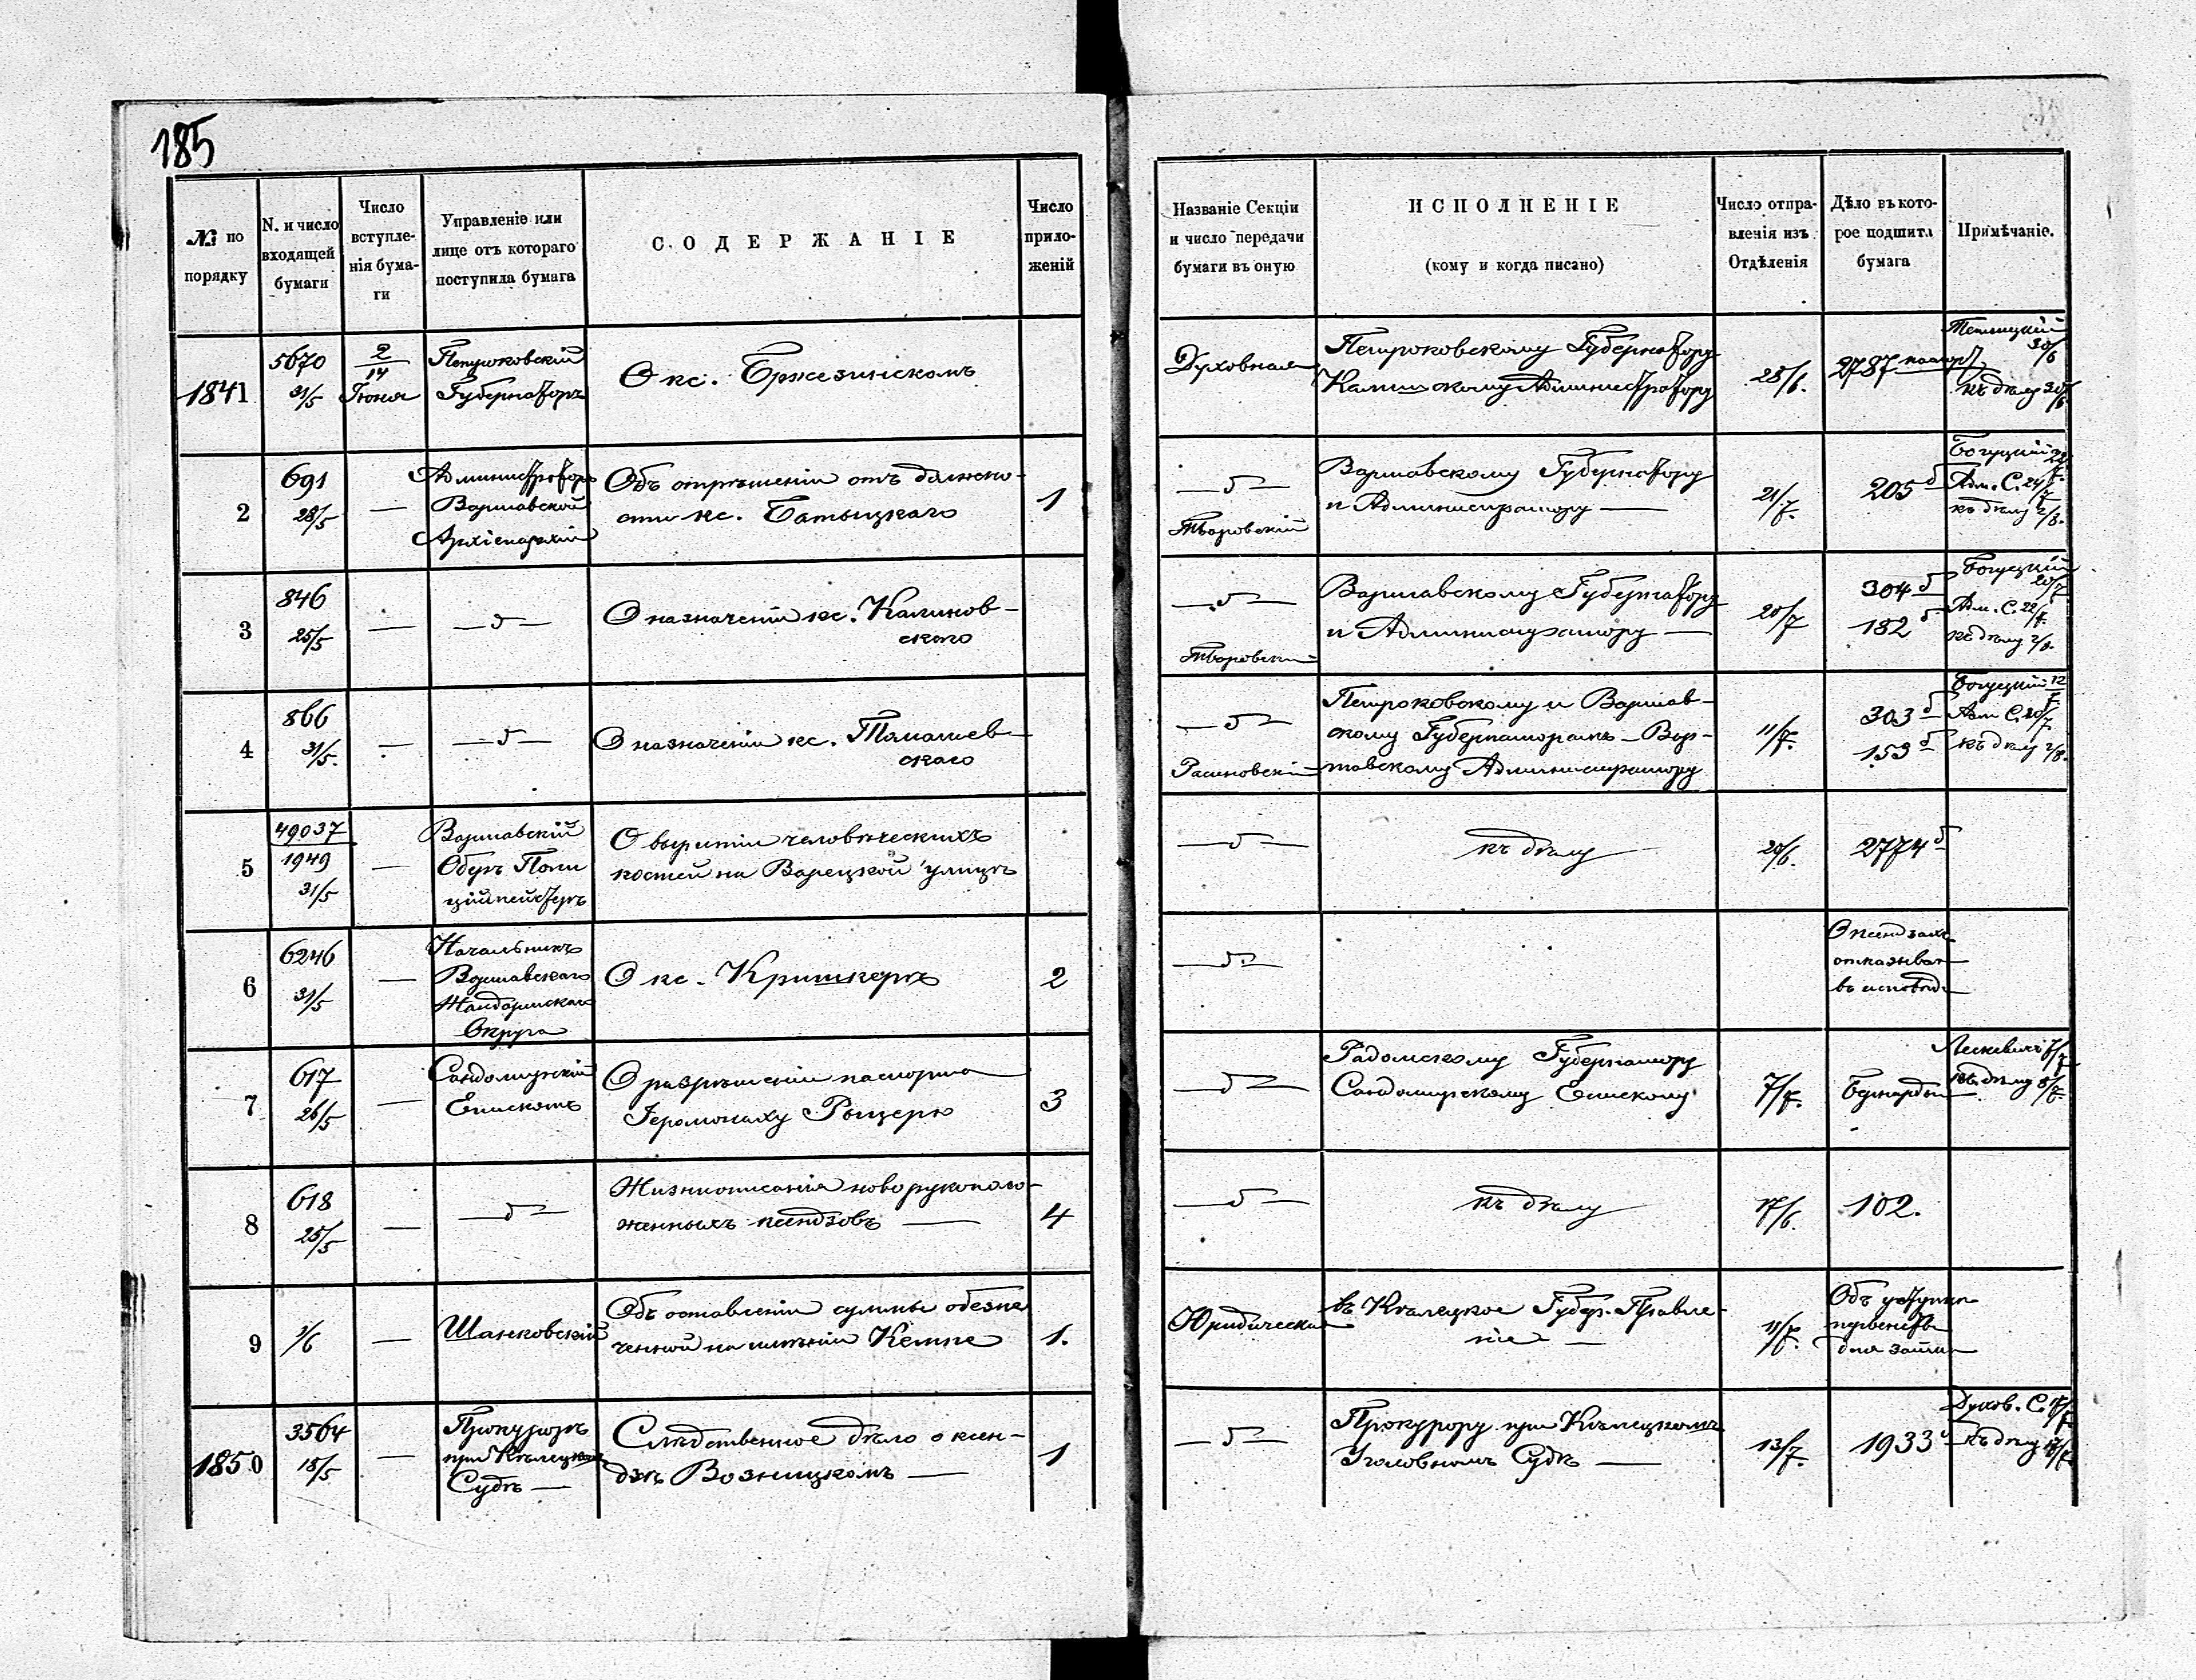 185
№ по порядку
N. и число входящей бумаги
Число вступленія бумаги
Управленіе или лице отъ котораго поступила бумага
СОДЕРЖАНІЕ
Число приложеній
Названіе Секціи и число передачи бумаги въ оную
ИСПОЛНЕНІЕ
(кому и когда писано)
Число отправленія изъ Отдѣленія
Дѣло въ которое подшита бумага
Примѣчаніе.
1841
5670
31/5
2/14
Іюня
Петроковскій
Губернаторъ
О кс. Бржезинскомъ
Духовная
Петроковскому Губернатору
Калишскому Администратору
28/6.
2787
30/6
къ дѣлу 30/6.
2
691
28/5
—
Администраторъ
Варшавской
Архіепархіи
Объ отрѣшеніи отъ должно-
сти кс. Батыцкаго
1
Варшавскому Губернатору
и Администратору —
21/7.
205
Богуцкій 22/7
Адм. С. 24/7
къ дѣлу 2/8.
3
846
25/5
—
О назначеніи кс. Калинов-
скаго
Варшавскому Губернатору
и Администратору —
20/7
304
182
Богуцкій
20/7
Адм. С. 22/7.
къ дѣлу 2/8.
4
866
31/5.
—
О назначеніи кс. Томашев-
скаго
Петроковскому и Варшав-
скому Губернаторамъ – Вар-
шавскому Администратору
11/7.
303
153
Богуцкій 12/7
Адм С. 20/7.
къ дѣлу 2/8.
5
49037
1949
31/5
—
Варшавскій
Оберъ Поли
ціймейстеръ
О вырытіи человѣческихъ
костей на Варецкой улицѣ
къ дѣлу
20/6.
2774
6
6246
31/5
—
Начальникъ
Варшавскаго
Жандармскаго
Округа
О кс. Кришкеръ
2
О ксендзахъ
отказыват
въ исповѣд
7
617
26/5
—
Сандомирскій
Епископъ
О разрѣшеніи паспорта
Іеромонаху Рыцерю
3
Радомскому Губернатору
Сандомирскому Епископу
7/7.
Бернарды
7/7
къ дѣлу 8/7.
8
618
25/5
—
Жизнеописанія новорукополо-
женныхъ ксендзовъ —
4
къ дѣлу
17/6.
102.
9
1/6
—
Шанковскій
Объ оставленіи суммы обезпе
ченной на имѣніи Кемпе
1.
Юридическая
въ Кѣлецкое Губер. Правле-
ніе —
11/7.
Объ уступк
первенств
для займа
1850
3564
18/5
—
Прокуроръ
при Кѣлецкомъ
Судѣ —
Слѣдственное дѣло о ксен-
дзѣ Возницкомъ —
1
Прокурору при Кѣлецкомъ
Уголовномъ Судѣ —
13/7.
1933
Духов. С. 17/7
къ дѣлу